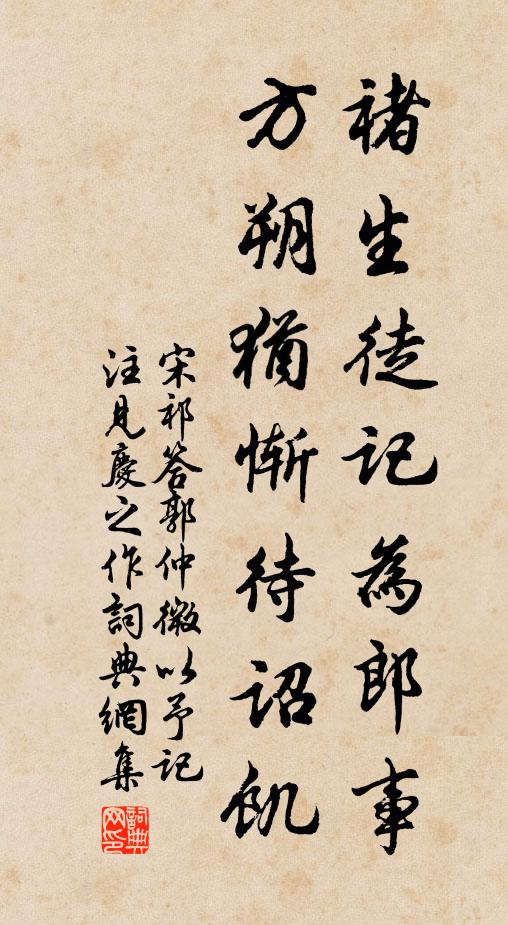 褚生徒記為郎事
方朔猶慚待詔飢
宋祁答郭仲微以予記
注見慶之作詞典網集
詞典网印